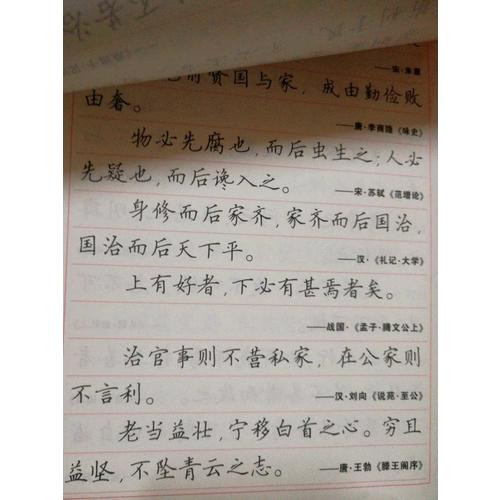 ——宋·朱熹
前贤国与家，成由勤俭败
由奢。
——唐·李商隐《咏史》
物必先腐也，而后虫生之；人必
先疑也，而后谗入之。
——宋·苏轼《范增论》
身修而后家齐，家齐而后国治，
国治而后天下平。
——汉·《礼记·大学》
上有好者，下必有甚焉者矣。
——战国·《孟子·滕文公上》
治官事则不营私家，在公家则
不言利。
——汉·刘向《说苑·至公》
老当益壮，宁移白首之心。穷且
益坚，不坠青云之志。
——唐·王勃《滕王阁序》